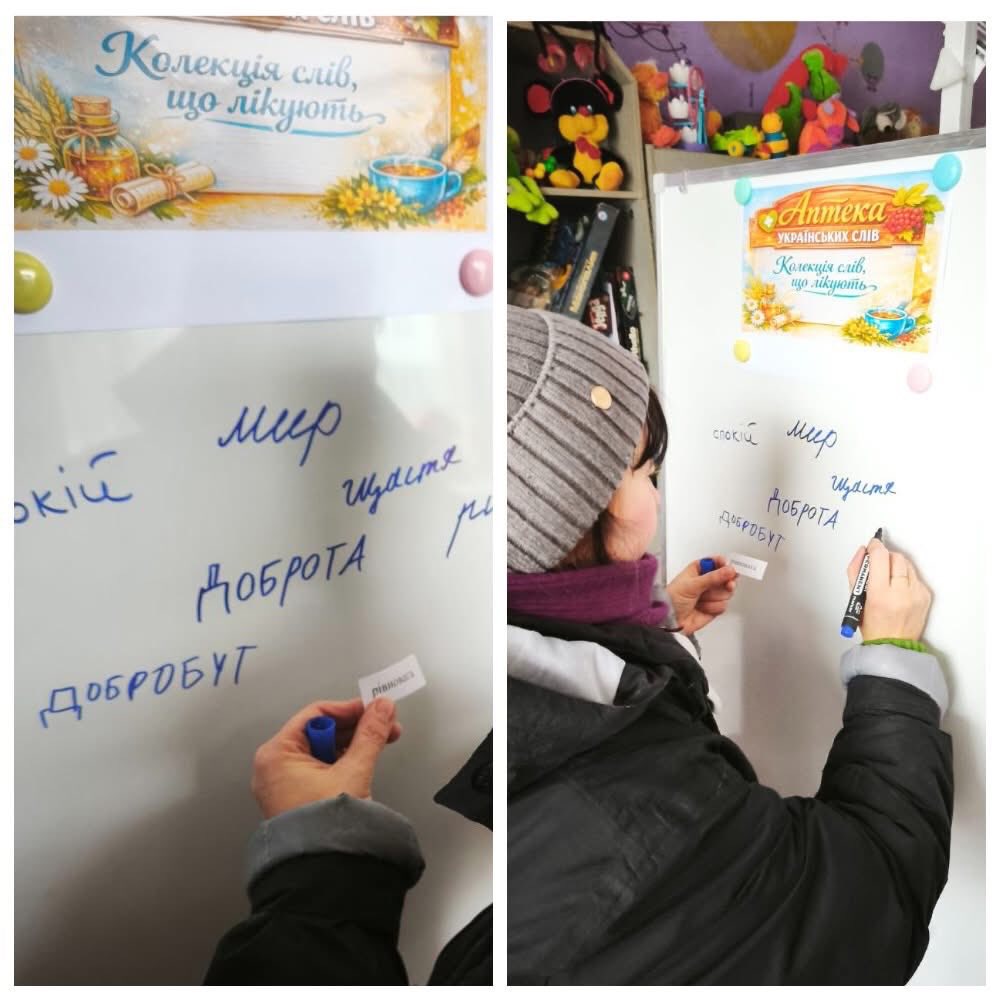 СЛІВ
Колекція слів,
що лікують
мир
окій
щастя
рі
ДОБРОТА
ДОБРОБУТ
рівновага
Аптека
УКРАЇНСЬКИХ СЛІВ
Колекція слів,
що лікують
спокій мир
щастя
ДОБРОТА
ДОБРОБУТ
рівновага
PERMANENT